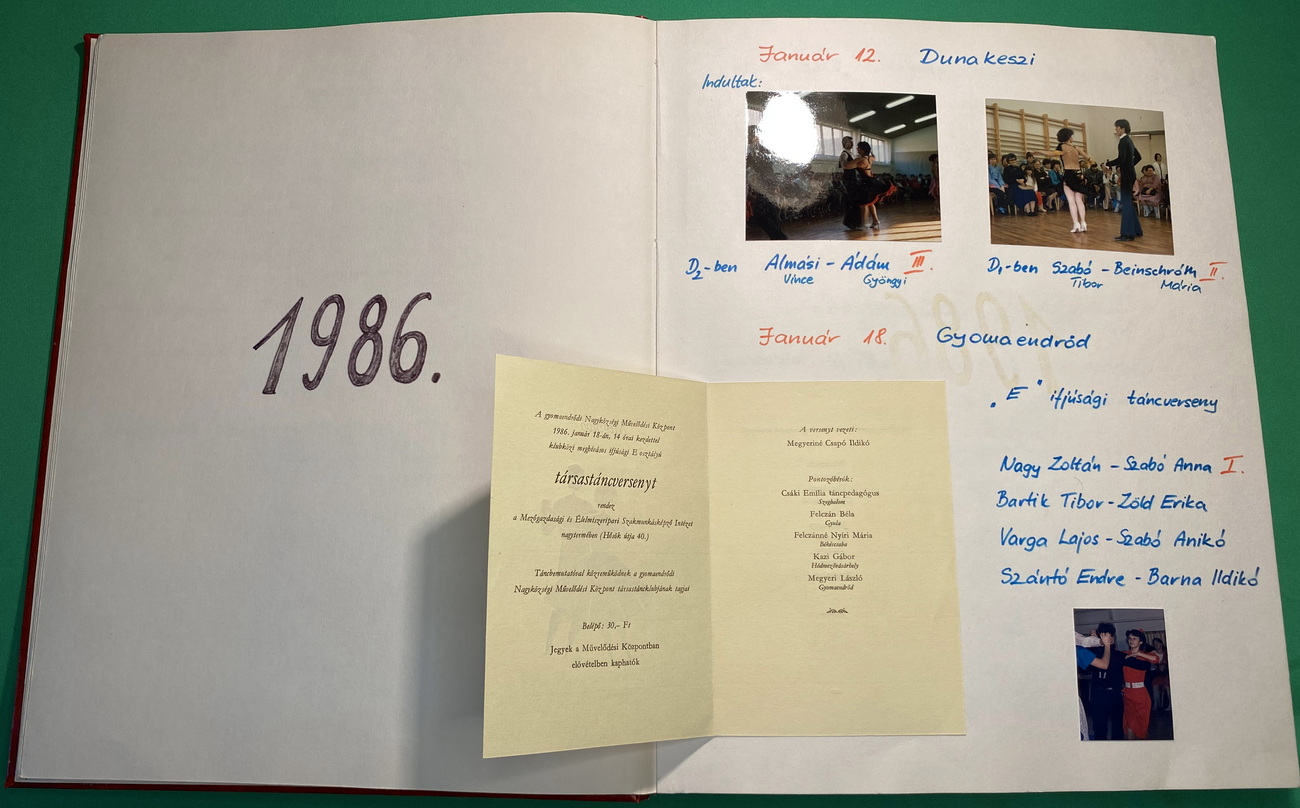 1986.
Január 12. Dunakeszi
Indultak:
D2-ben Almási - Ádám III.
Vince Gyöngyi
D1-ben Szabó - Beinschróm II.
Tibor Mária
Január 18. Gyomaendrőd
„E" ifjúsági táncverseny
Nagy Zoltán - Szabó Anna I.
Bartik Tibor - Zöld Erika
Varga Lajos - Szabó Anikó
Szántó Endre - Barna Ildikó
A gyomaendrődi Nagyközségi Művelődési Központ
1986. január 18-án, 14 órai kezdettel
klubközi megbízásos ifjúsági E osztályú
társastáncversenyt
rendez
a Mezőgazdasági és Élelmiszeripari Szakmunkásképző Intézet
nagytermében (Hősök útja 40.)
Táncbemutatóval közreműködnek a gyomaendrődi
Nagyközségi Művelődési Központ társastáncklubjának tagjai
Belépő: 30,- Ft
Jegyek a Művelődési Központban
elővételben kaphatók
A versenyt vezeti:
Megyeriné Csapó Ildikó
Pontozóbírók:
Csáki Emília táncpedagógus
Szeghalom
Felczán Béla
Gyula
Felczánné Nyíri Mária
Békéscsaba
Kazi Gábor
Hódmezővásárhely
Megyeri László
Gyomaendrőd